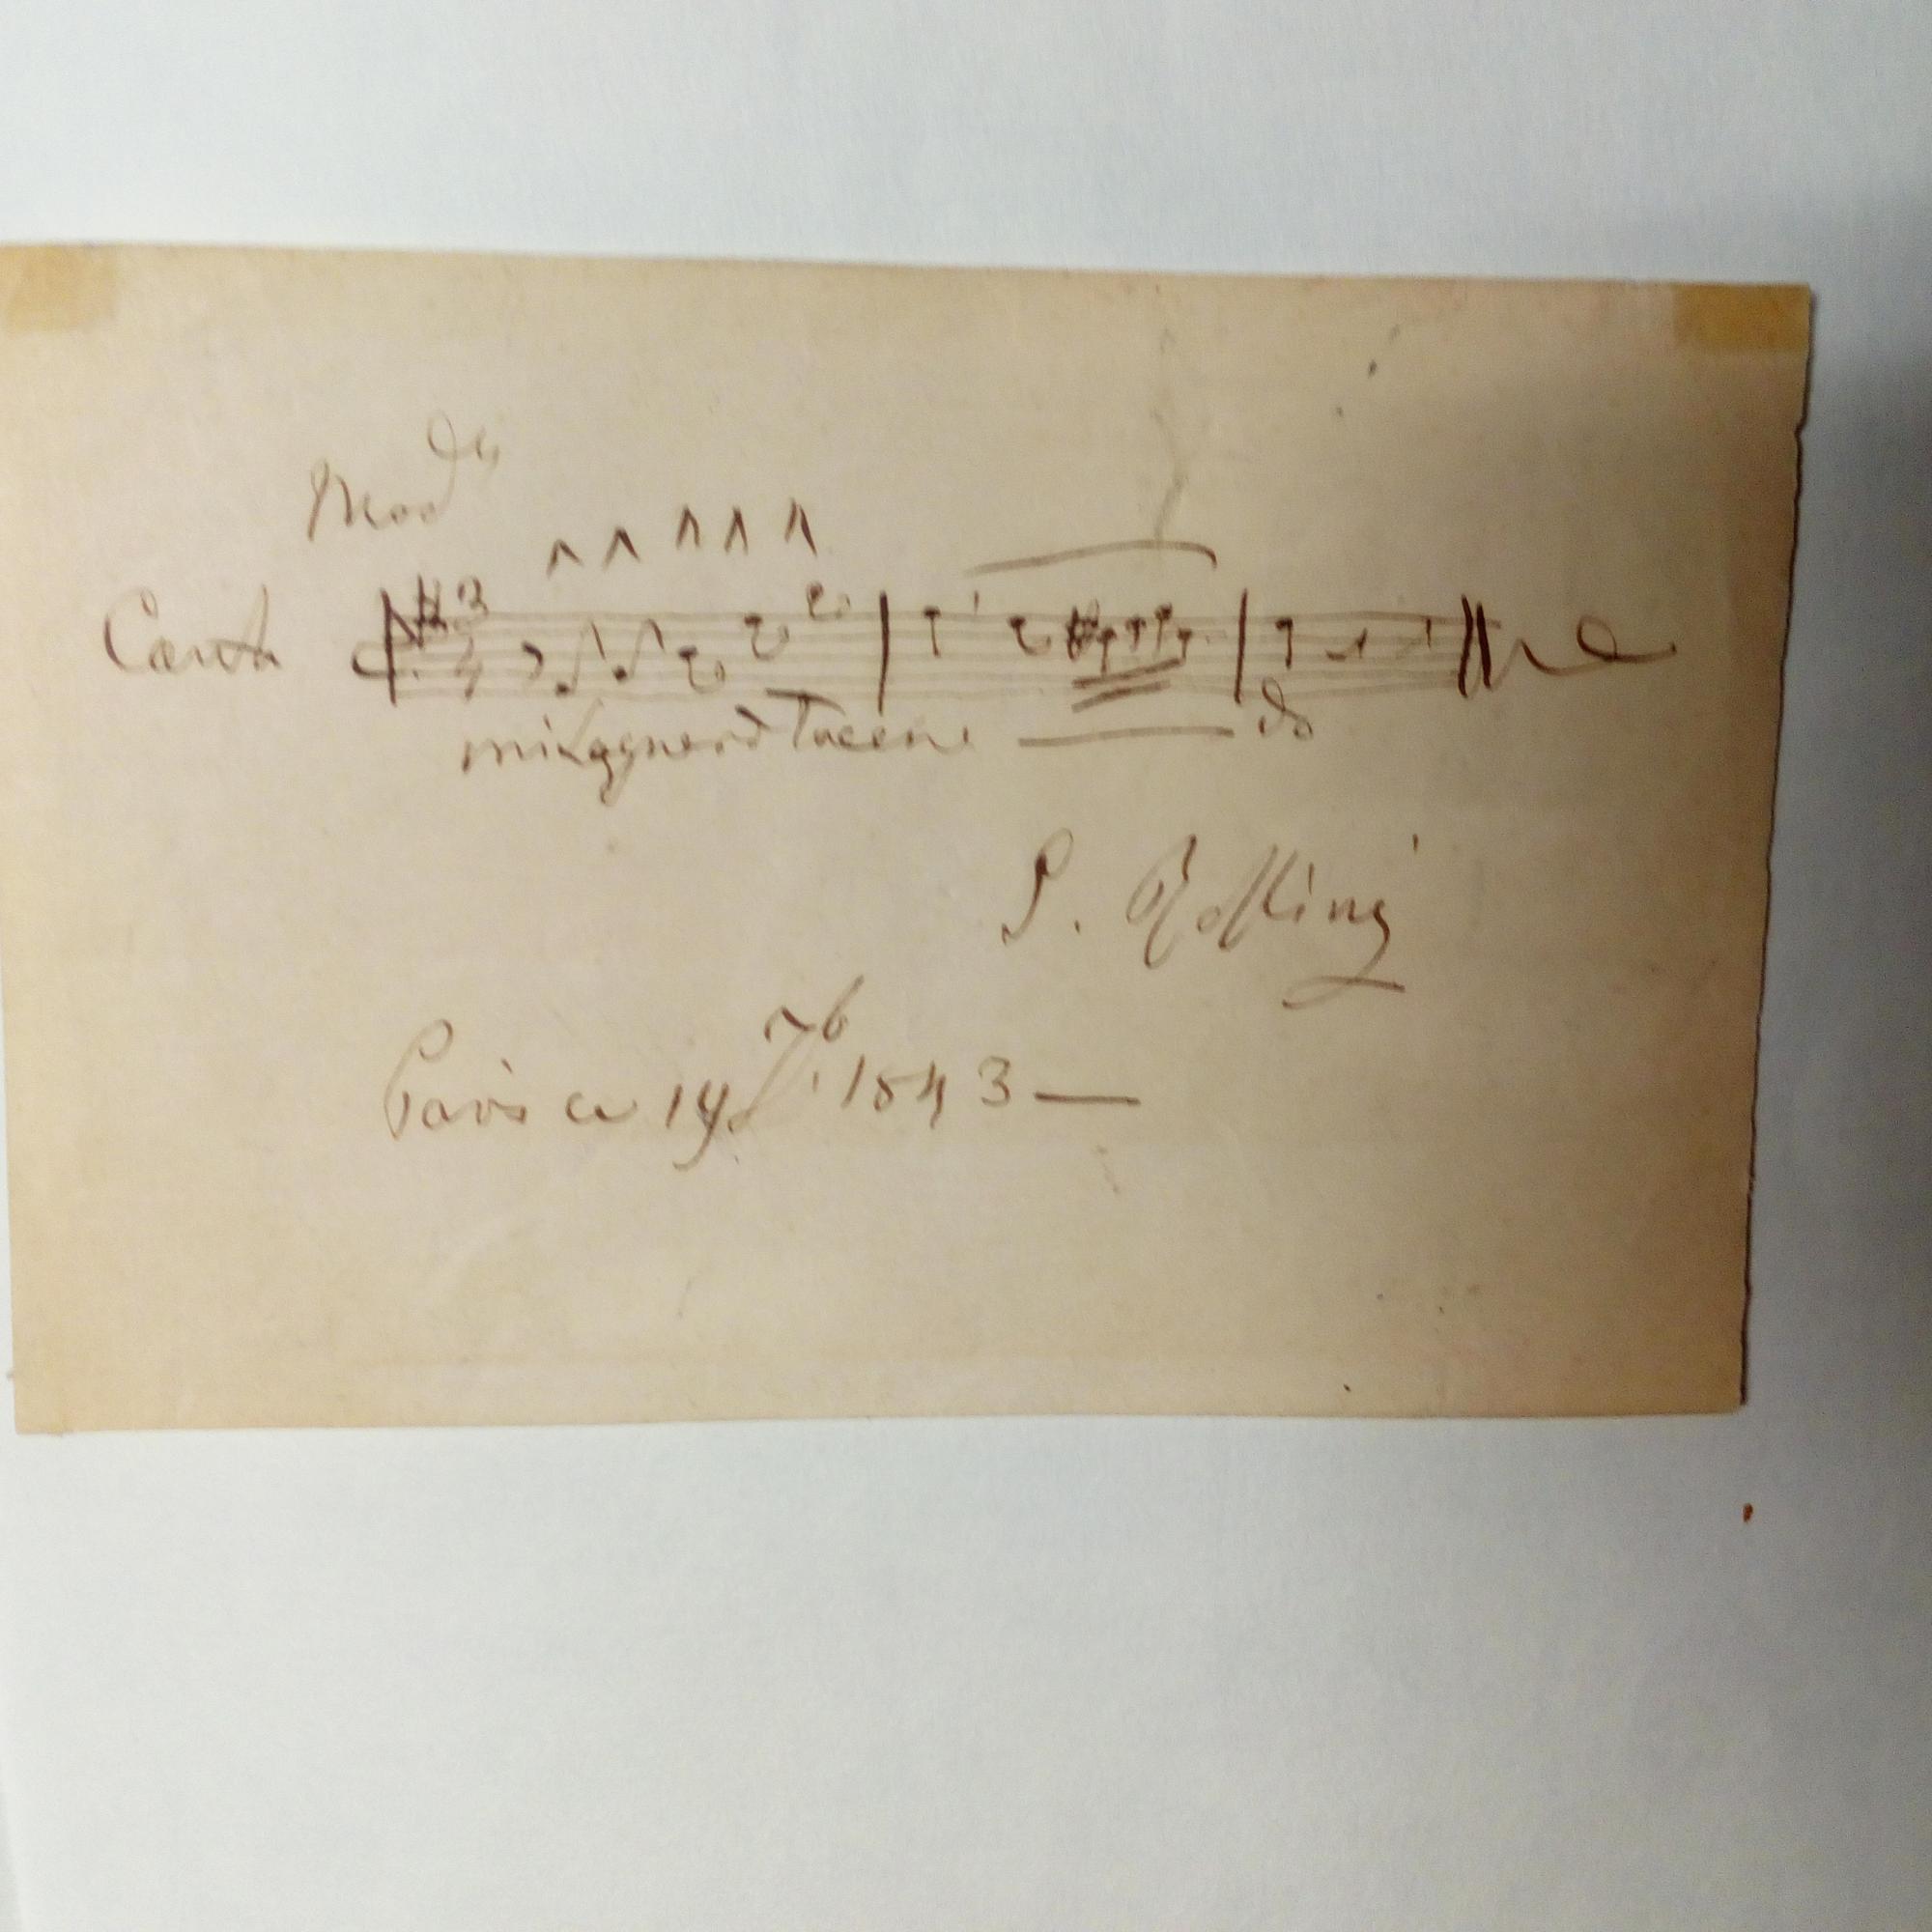 Mod.to
Canto 3 4
mi lagnerò Tacen do
G. Rossini
Paris ce 19 7b. 1843